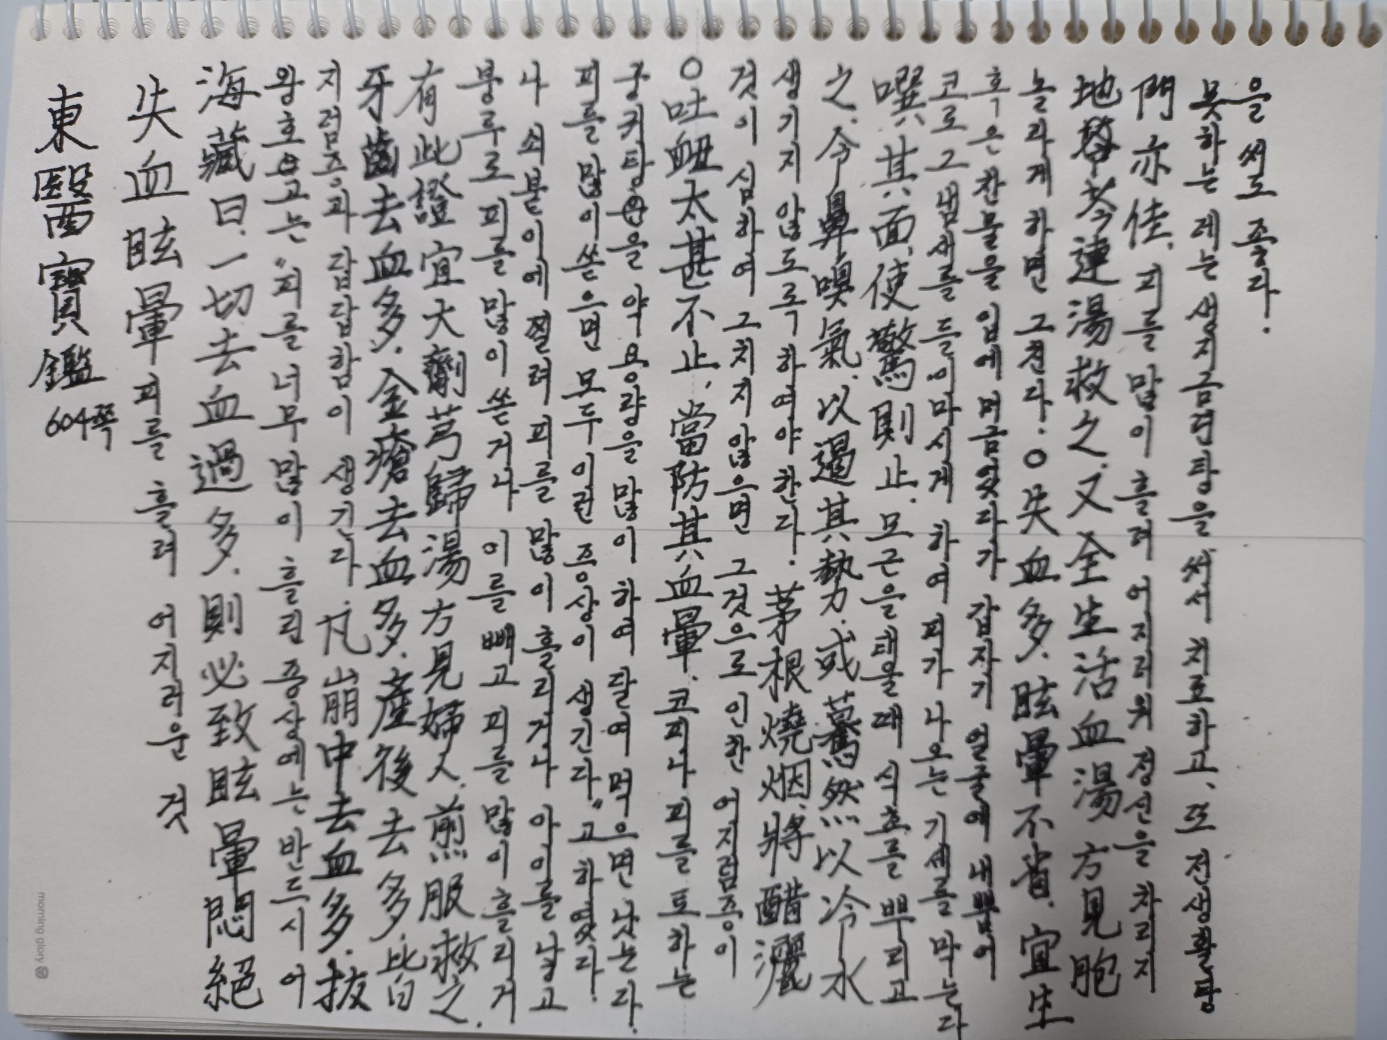 東醫寶鑑 604쪽
失血眩暈 피를 흘려 어지러운 것
海藏曰, 一切去血過多, 則必致眩暈悶絕
왕호고는 “피를 너무 많이 흘린 증상에는 반드시 어
지럼증과 답답함이 생긴다. 凡崩中去血多, 拔
牙齒去血多, 金瘡去血多, 產後去多, 皆
有此證 宜大劑芎歸湯方見婦人, 煎服救之.
붕루로 피를 많이 쏟거나 이를 빼고 피를 많이 흘리거
나 쇠붙이에 찔려 피를 많이 흘리거나 아이를 낳고
피를 많이 쏟으면 모두 이런 증상이 생긴다.”고 하였다.
궁귀탕을 약 용량을 많이 하여 달여 먹으면 낫는다.
○吐衄太甚不止, 當防其血暈. 코피나 피를 토하는
것이 심하여 그치지 않으면 그것으로 인한 어지럼증이
생기지 않도록 하여야 한다. 茅根燒烟, 將醋灑
之, 令鼻嗅氣, 以遏其勢, 或驀然以冷水
噀其面, 使驚則止. 모근을 태울 때 식초를 뿌리고
코로 그 냄새를 들이마시게 하여 피가 나오는 기세를 막는다
혹은 찬물을 입에 머금었다가 갑자기 얼굴에 내뿜어
놀라게 하면 그친다. ○失血多, 眩暈不省, 宜生
地芩連湯救之, 又全生活血湯方見胞
門亦佳. 피를 많이 흘려 어지러워 정신을 차리지
못하는 데는 생지금련탕을 써서 치료하고, 또 전생활혈탕
을 써도 좋다.
morning glory